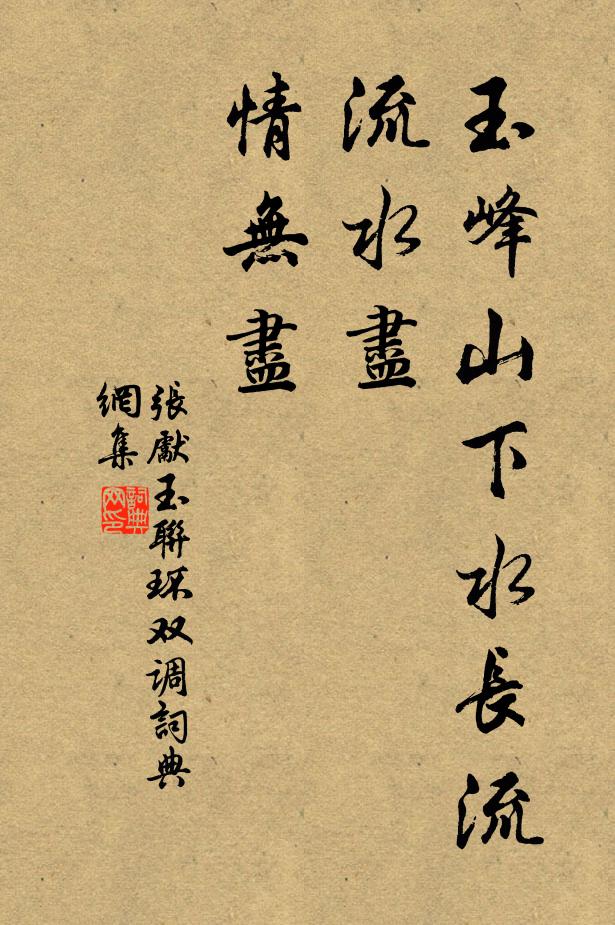 玉峰山下水長流
流水盡
情無盡
張獻玉聯环双调詞典
網集
詞典
网印